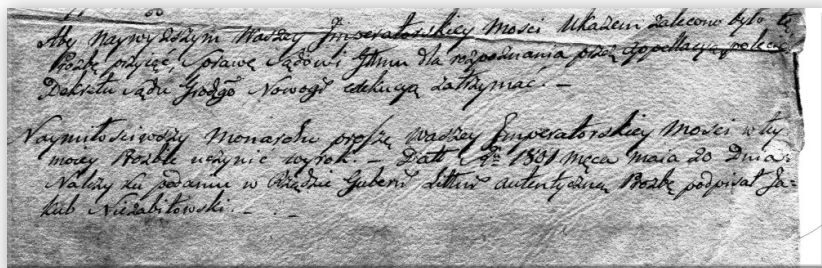 Aby naywyższym Waszey Imperatorskiey Mości Ukazem zalecono było tę
Prozbę przyjąć, Sprawę Sądowi Głmu dla rozpoznania przez appellacyą polecić
Dekretu Sądu Grodzgo Nowogr exekucyą zatrzymać. —
Naymiłościwszy Monarcho proszę Waszey Imperatorskiey Mości w tey
mocy Prozbie uczynić wyrok. — Datt Rq 1801 męca maia 20 Dnia.
Należy ku podaniu w Rządzie Guberń Littiw autentyczną Prozbę podpisał Ja-
kub Niezabitowski. — . —